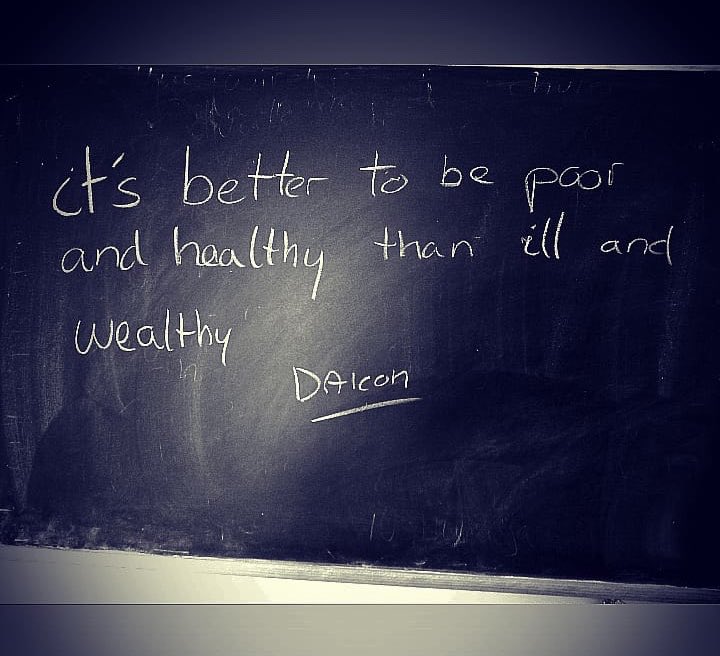 it's better to be poor
and healthy than ill and
wealthy
DAIcon